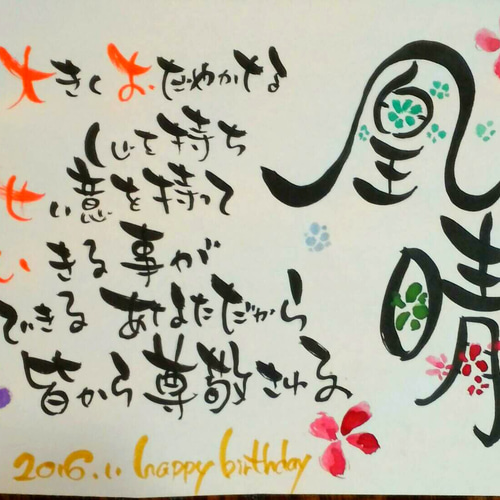 凰晴
大きくおだやかなる
心を持ち
せい意を持って
いきる事が
できるあなただから
皆から尊敬される
2016.1. happy birthday